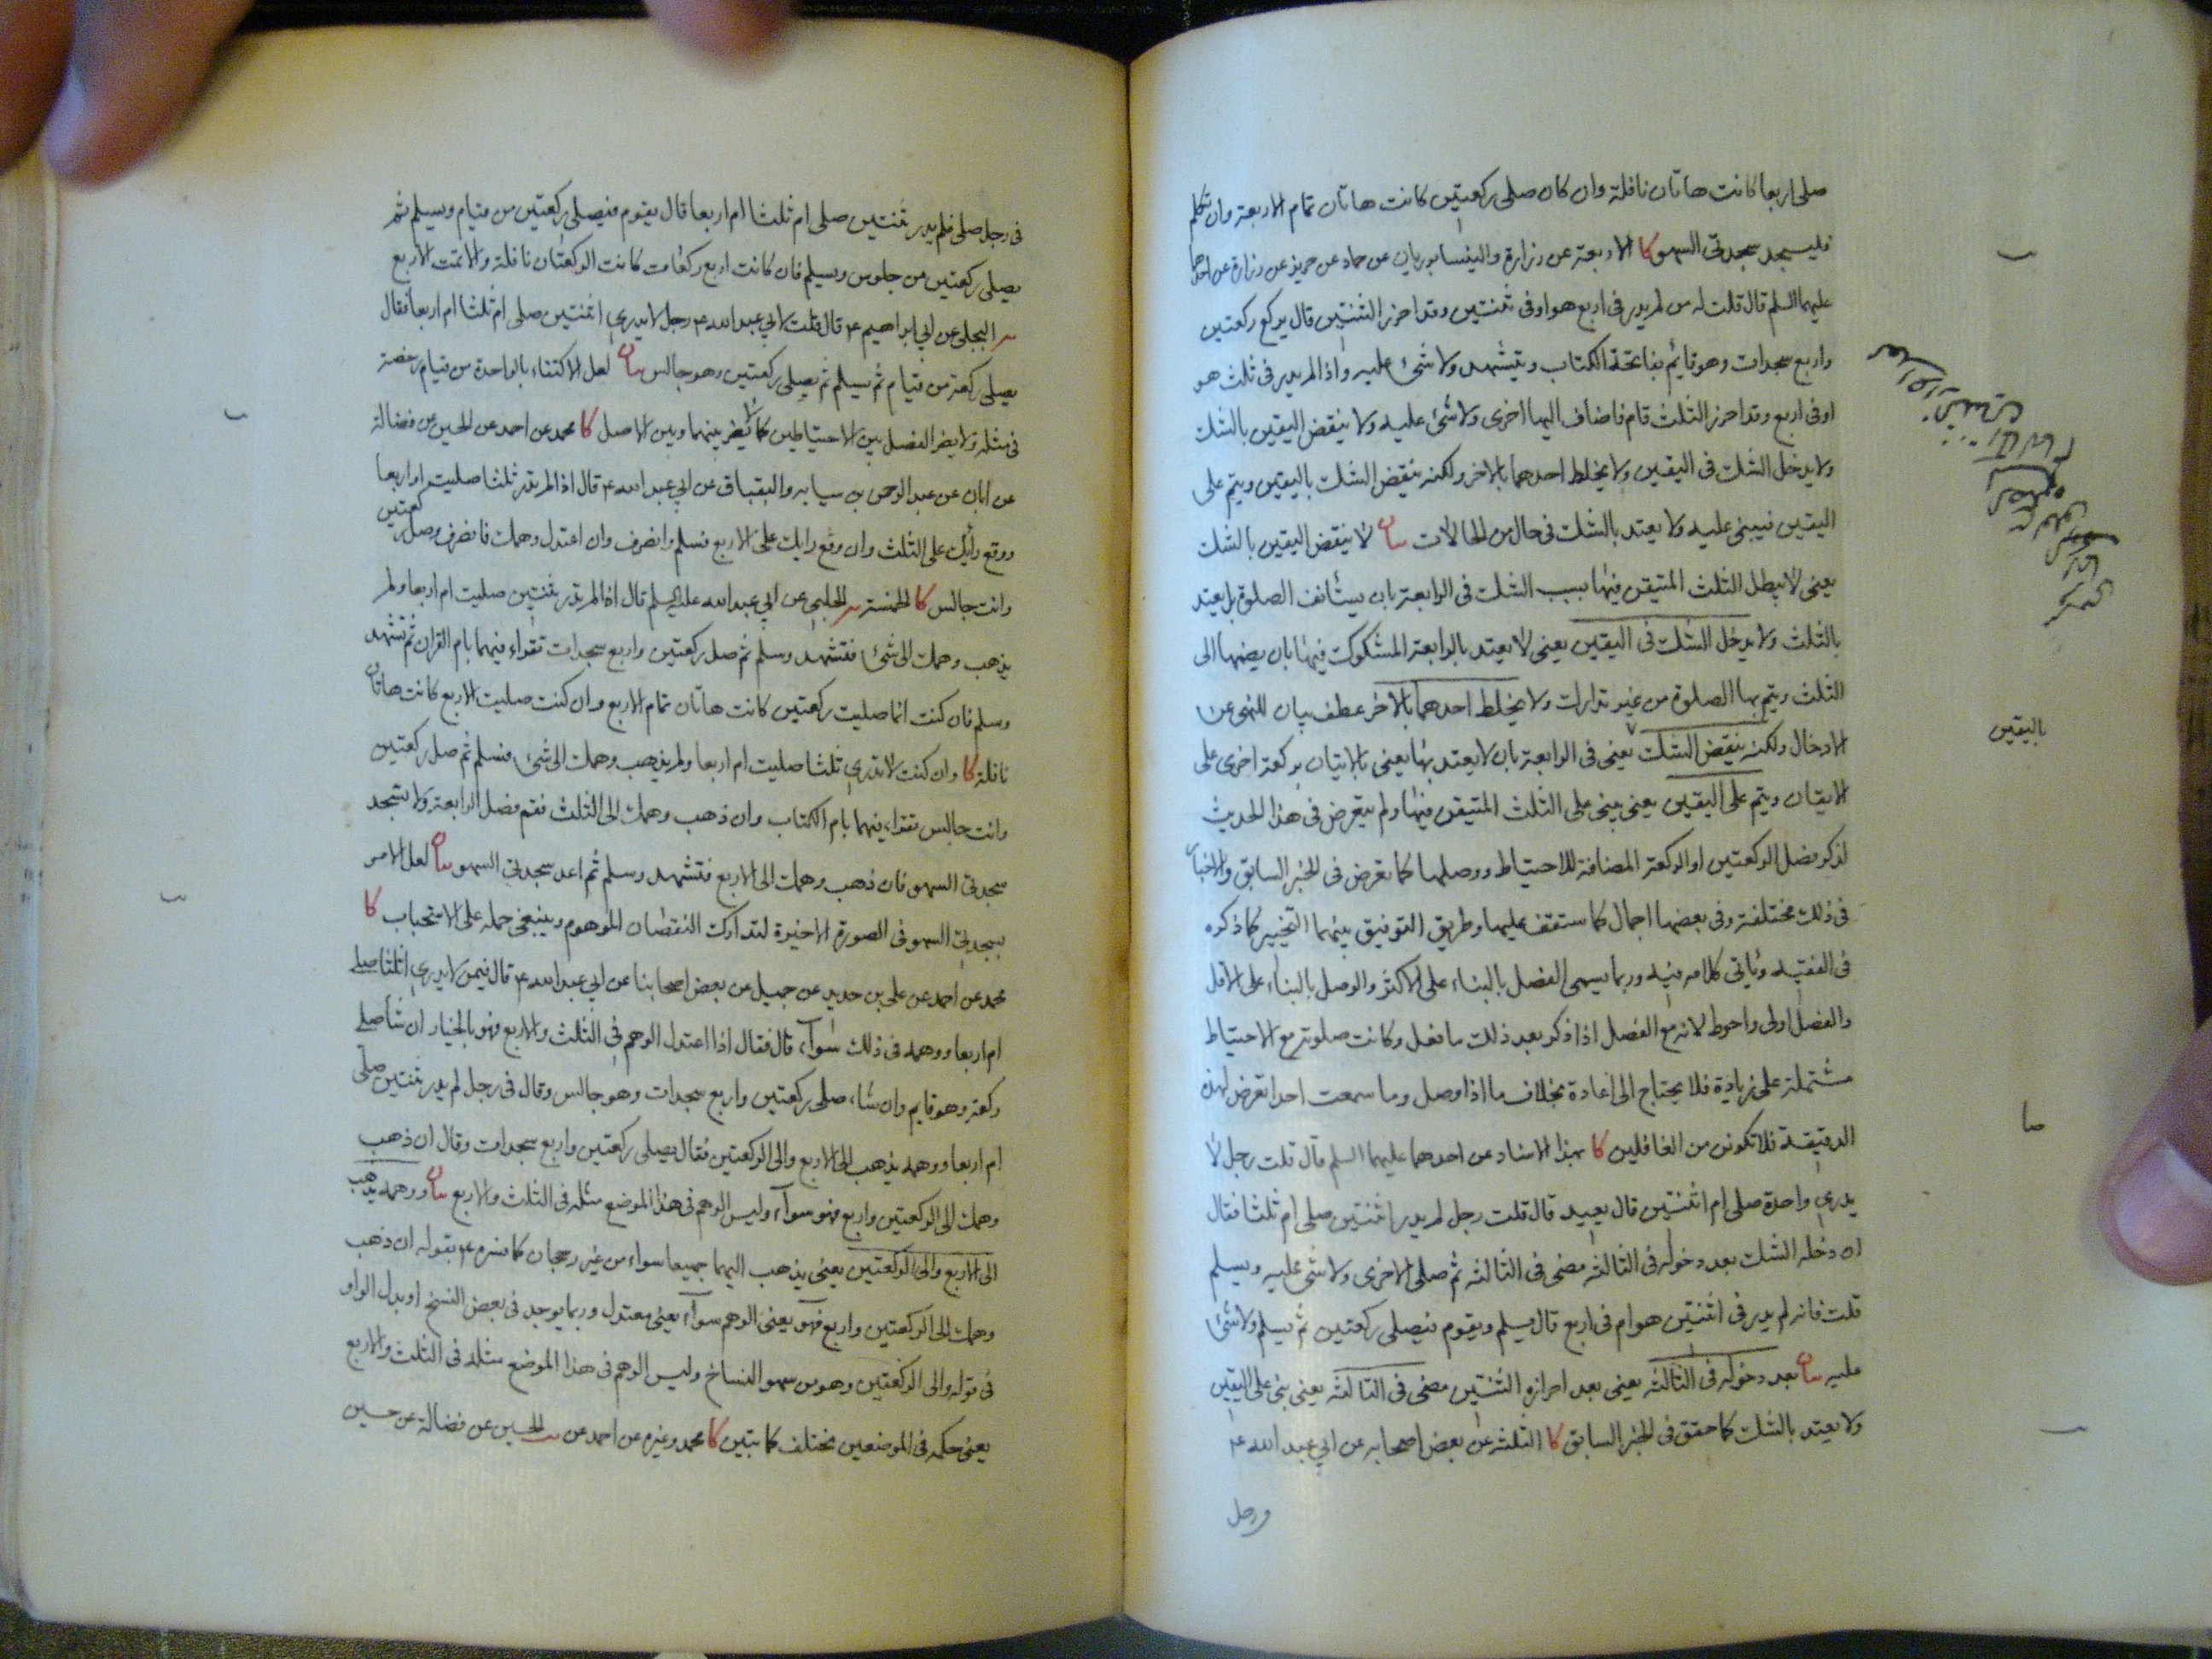 صلى اربعا كانت هاتان نافلة وان كان صلى ركعتين كانت هاتان تمام الاربعة وان تكلم
فليسجد سجدتى السهو كا الاربعة عن زرارة والنيسابوريان عن حماد عن حريز عن زرارة عن احدهما
عليهما السلم قال قلت له من لم يدر فى اربع هو او فى ثنتين وقد احرز الثنتين قال يركع ركعتين
واربع سجدات وهو قايم بفاتحة الكتاب ويتشهد ولا شئ عليه واذا لم يدر فى ثلث هو
او فى اربع وقد احرز الثلث قام فاضاف اليها اخرى ولا شئ عليه ولا ينقض اليقين بالشك
ولا يدخل الشك فى اليقين ولا يخلط احدهما بالاخر ولكنه ينقض الشك باليقين ويتم على
اليقين فيبنى عليه ولا يعتد بالشك فى حال من الحالات بيان لا ينقض اليقين بالشك
يعنى لا يبطل الثلث المتيقن فيها بسبب الشك فى الرابعة بان يستأنف الصلوة بل يعتد
بالثلث ولا يدخل الشك فى اليقين يعنى لا يعتد بالرابعة المشكوك فيها بان يضمها الى
الثلث ويتم بها الصلوة من غير تدارك ولا يخلط احدهما بالاخر عطف بيان للنهى عن
الادخال ولكنه ينقض الشك يعنى فى الرابعة بان لا يعتد بها يعنى بالاتيان بركعة اخرى على
باليقين
الايقان ويتم على اليقين يعنى يبنى على الثلث المتيقن فيها ولم يتعرض فى هذا الحديث
لذكر فضل الركعتين او الركعة المضافة للاحتياط ووصلها كما تعرض فى الخبر السابق والاخبار
فى ذلك مختلفة وفى بعضها اجمال كما ستقف عليها وطريق التوفيق بينهما التخيير كما ذكره
فى الفقيه وياتى كلامه فيه وربما يسمى الفصل بالبناء على الاكثر والوصل بالبناء على الاقل
والفصل اولى واحوط لانه مع الفصل اذا ذكر بعد ذلك ما فعل وكانت صلوته مع الاحتياط
مشتملة على زيادة فلا يحتاج الى اعادة بخلاف ما اذا وصل وما سمعت احدا تعرض لهذه
الدقيقة فلا تكونن من الغافلين كا بهذا الاسناد عن احدهما عليهما السلم قال قلت رجل لا
يدرى واحدة صلى ام اثنتين قال يعيد قال قلت رجل لم يدر اثنتين صلى ام ثلثا فقال
ان دخله الشك بعد دخوله فى الثالثة مضى فى الثالثة ثم صلى الاخرى ولا شئ عليه ويسلم
قلت فانه لم يدر فى اثنتين هو ام فى اربع قال يسلم ويقوم فيصلى ركعتين ثم يسلم ولا شئ
عليه بيان بعد دخوله فى الثالثة يعنى بعد احرازه الثنتين مضى فى الثالثة يعنى يبنى على اليقين
ولا يعتد بالشك كما حقق فى الخبر السابق كا الثلثة عن بعض اصحابه عن ابى عبد الله ع
فى رجل صلى فلم يدر ثنتين صلى ام ثلثا ام اربعا قال يقوم فيصلى ركعتين من قيام ويسلم ثم
يصلى ركعتين من جلوس ويسلم فان كانت اربع ركعات كانت الركعتان نافلة والا تمت الاربع
يه البجلى عن ابى ابراهيم ع قال قلت لابى عبد الله ع رجل لا يدرى اثنتين صلى ام ثلثا ام اربعا فقال
يصلى ركعة من قيام ثم يسلم ثم يصلى ركعتين وهو جالس بيان لعل الاكتفاء بالواحدة من قيام رخصة
فى مثله ولا يضر الفصل بين الاحتياطين كما لا يضر بينهما وبين الاصل كا محمد عن احمد عن الحسين عن فضالة
عن ابان عن عبد الرحمن بن سيابه والبقباق عن ابى عبد الله ع قال اذا لم تدر ثلثا صليت او اربعا
ووقع رأيك على الثلث وان وقع رايك على الاربع فسلم وانصرف وان اعتدل وهمك فانصرف وصل ركعتين
وانت جالس كا الخمسة يه الحلبى عن ابى عبد الله عليه السلم قال اذا لم تدر ثنتين صليت ام اربعا ولم
يذهب وهمك الى شئ فتشهد وسلم ثم صل ركعتين واربع سجدات تقراء فيهما بام القران ثم تشهد
وسلم فان كنت انما صليت ركعتين كانت هاتان تمام الاربع وان كنت صليت الاربع كانت هاتان
نافلة كا وان كنت لا تدرى ثلثا صليت ام اربعا ولم يذهب وهمك الى شئ فسلم ثم صل ركعتين
وانت جالس تقراء فيهما بام الكتاب وان ذهب وهمك الى الثلث فقم فصل الرابعة ولا تسجد
سجدتى السهو فان ذهب وهمك الى الاربع فتشهد وسلم ثم اعد سجدتى السهو بيان لعل الامر
بسجدتى السهو فى الصورة الاخيرة لتدارك النقصان الموهوم وينبغى حمله على الاستحباب كا
محمد عن احمد عن على بن حديد عن جميل عن بعض اصحابنا عن ابى عبد الله ع قال فيمن لا يدرى اثلثا صلى
ام اربعا ووهمه فى ذلك سواء قال فقال اذا اعتدل الوهم فى الثلث والاربع فهو بالخيار ان شاء صلى
ركعة وهو قايم وان شاء صلى ركعتين واربع سجدات وهو جالس وقال فى رجل لم يدر ثنتين صلى
ام اربعا ووهمه يذهب الى الاربع والى الركعتين فقال يصلى ركعتين واربع سجدات وقال ان ذهب
وهمك الى الركعتين واربع فهو سواء وليس الوهم فى هذا الموضع مثله فى الثلث والاربع بيان ووهمه يذهب
الى الاربع والى الركعتين يعنى يذهب اليهما جميعا سواء من غير رجحان كما فسره ع بقوله ان ذهب
وهمك الى الركعتين واربع فهو يعنى الوهم سواء يعنى معتدل وربما يوجد فى بعض النسخ او بدل الواو
فى قوله والى الركعتين وهو من سهو النساخ وليس الوهم فى هذا الموضع مثله فى الثلث والاربع
يعنى حكمه فى الموضعين مختلف كما تبين كا محمد وغيره عن احمد عن يب الحسين عن فضالة عن حسين